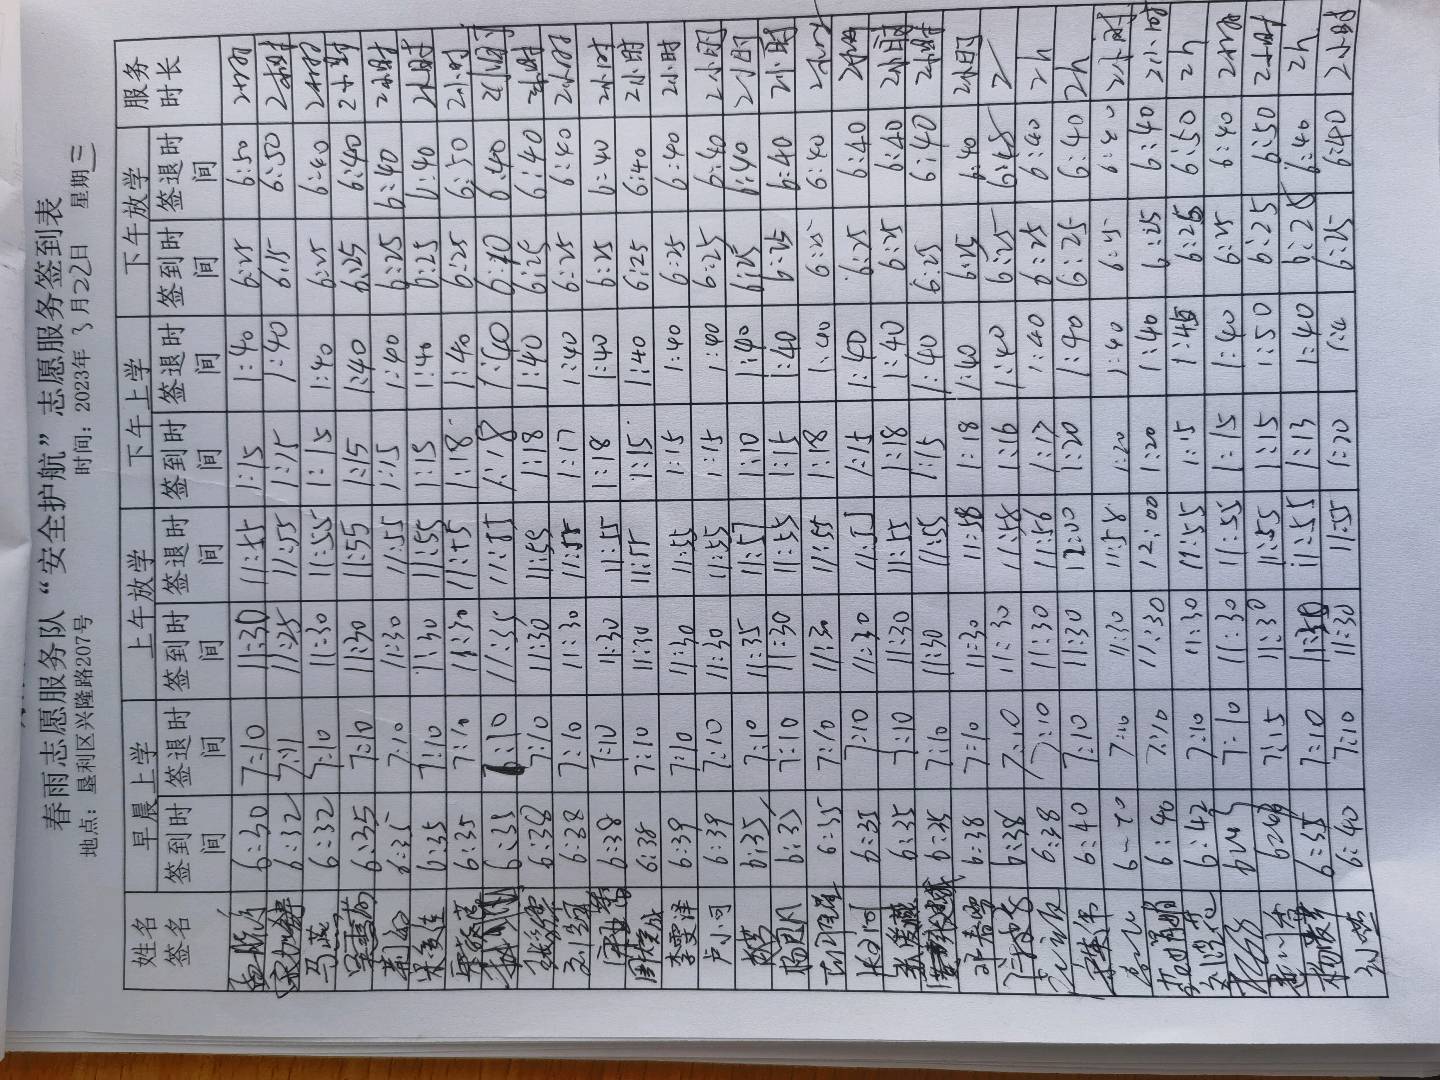 春雨志愿服务队“安全护航”志愿服务签到表
地点：垦利区兴隆路207号 时间：2023年3月22日 星期三
姓名 早晨上学 上午放学 下午上学 下午放学 服务时长
签名 签到时间 签退时间 签到时间 签退时间 签到时间 签退时间 签到时间 签退时间
6:30 7:10 11:30 11:55 1:15 1:40 6:25 6:50 2小时
6:32 7:11 11:25 11:55 1:15 1:40 6:25 6:50 2小时
马燕 6:32 7:10 11:30 11:55 1:15 1:40 6:25 6:40 2小时
6:35 7:10 11:30 11:55 1:15 1:40 6:25 6:40 2小时
6:35 7:10 11:30 11:55 1:15 1:40 6:25 6:40 2小时
6:35 7:10 11:30 11:55 1:15 1:40 6:25 6:40 2小时
6:35 7:10 11:30 11:55 1:18 1:40 6:25 6:50 2小时
6:35 7:10 11:35 11:55 1:18 1:40 6:10 6:40 2小时
6:38 7:10 11:30 11:55 1:18 1:40 6:25 6:40 2小时
6:28 7:10 11:30 11:55 1:17 1:40 6:25 6:40 2小时
6:38 7:10 11:30 11:55 1:18 1:40 6:25 6:40 2小时
6:38 7:10 11:30 11:55 1:15 1:40 6:25 6:40 2小时
李雯洋 6:39 7:10 11:30 11:55 1:15 1:40 6:25 6:40 2小时
卢小可 6:39 7:10 11:30 11:55 1:15 1:40 6:25 6:40 2小时
6:35 7:10 11:35 11:57 1:10 1:40 6:25 6:40 2小时
6:35 7:10 11:30 11:55 1:15 1:40 6:25 6:40 2小时
6:35 7:10 11:30 11:55 1:18 1:40 6:25 6:40 2小时
6:35 7:10 11:30 11:55 1:15 1:40 6:25 6:40 2小时
6:35 7:10 11:30 11:55 1:18 1:40 6:25 6:40 2小时
6:35 7:10 11:30 11:55 1:15 1:40 6:25 6:40 2小时
许春雪 6:38 7:10 11:30 11:58 1:18 1:40 6:25 6:40 2小时
6:38 7:10 11:30 11:58 1:16 1:40 6:25 6:45 2
6:38 7:10 11:30 11:56 1:17 1:40 6:25 6:40 2h
6:40 7:10 11:30 12:00 1:20 1:40 6:25 6:40 2h
7:10 11:30 11:58 1:20 1:40 6:25 6:40 2小时
6:40 7:10 11:30 12:00 1:20 1:40 6:25 6:40 2小时
6:42 7:10 11:30 11:55 1:15 1:45 6:25 6:50 2h
7:10 11:30 11:55 1:15 1:40 6:25 6:40 2小时
7:15 11:30 11:55 1:15 1:50 6:25 6:50 2小时
6:35 7:10 11:30 11:55 1:13 1:40 6:25 6:40 2h
6:40 7:10 11:30 11:55 1:20 1:4 6:25 6:40 2小时